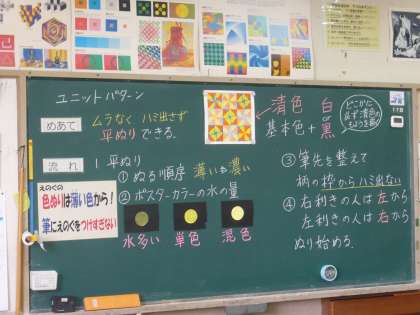 ユニットパターン
めあて
ムラなく ハミ出さず
平ぬりできる.
清色 白
or
基本色+黒
どこかに
必ず清色の
流れ
1 平ぬり
① ぬる順序 薄い→濃い
② ポスターカラーの水の量
えのぐの
色ぬりは薄い色から!
筆にえのぐをつけすぎない
水多い 単色 混色
③ 筆先を整えて
柄の枠からハミ出ない
④ 右利きの人は左から
左利きの人は右から
ぬり始める.